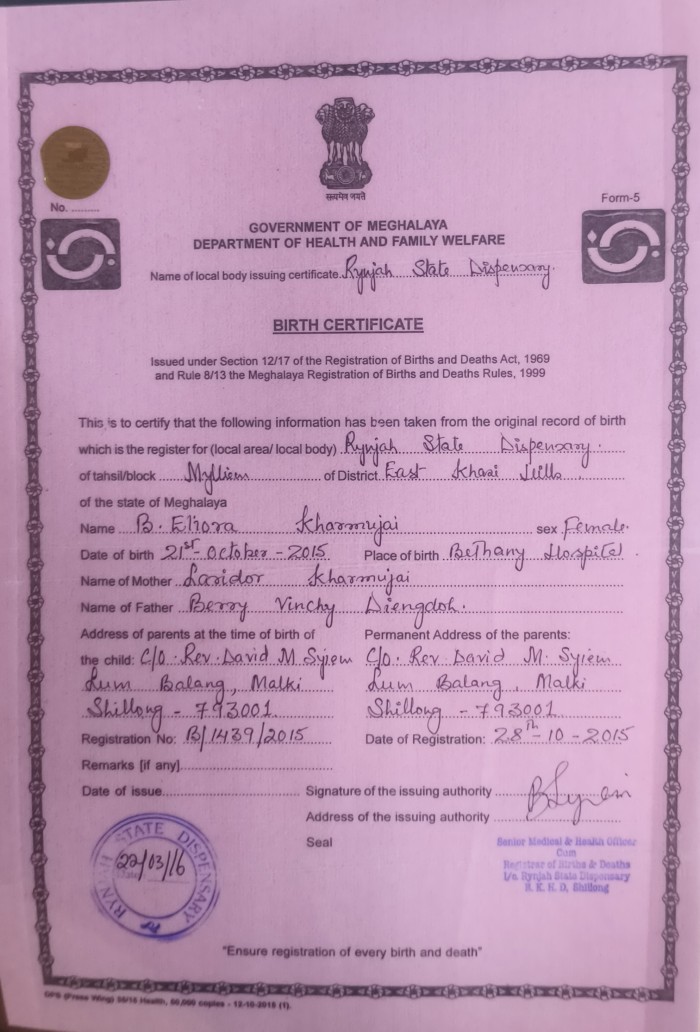 सत्यमेव जयते
No. ..........
Form-5
GOVERNMENT OF MEGHALAYA
DEPARTMENT OF HEALTH AND FAMILY WELFARE
Name of local body issuing certificate Rynjah State Dispensary
BIRTH CERTIFICATE
Issued under Section 12/17 of the Registration of Births and Deaths Act, 1969
and Rule 8/13 the Meghalaya Registration of Births and Deaths Rules, 1999
This is to certify that the following information has been taken from the original record of birth
which is the register for (local area/ local body) Rynjah State Dispensary.
of tahsil/block Mylliem of District East Khasi Hills
of the state of Meghalaya
Name B. Eliora Kharmujai sex Female.
Date of birth 21st October - 2015 Place of birth Bethany Hospital
Name of Mother Laridor Kharmujai
Name of Father Berry Vinchy Diengdoh.
Address of parents at the time of birth of Permanent Address of the parents:
the child: C/O. Rev. David M Syiem C/O. Rev David M. Syiem
Lum Balang, Malki Lum Balang, Malki
Shillong - 793001 Shillong - 793001
Registration No: B/1439/2015 Date of Registration: 28th - 10 - 2015
Remarks [if any]
Date of issue Signature of the issuing authority
Address of the issuing authority
Seal
Senior Medical & Health Officer
Cum
Registrar of Births & Deaths
I/c. Rynjah State Dispensary
E. K. H. D, Shillong
RYNJAH STATE DISPENSARY
22/03/16
Date
"Ensure registration of every birth and death"
GPS (Press Wing) Health, 50,000 copies - 12-10-2015 (1).